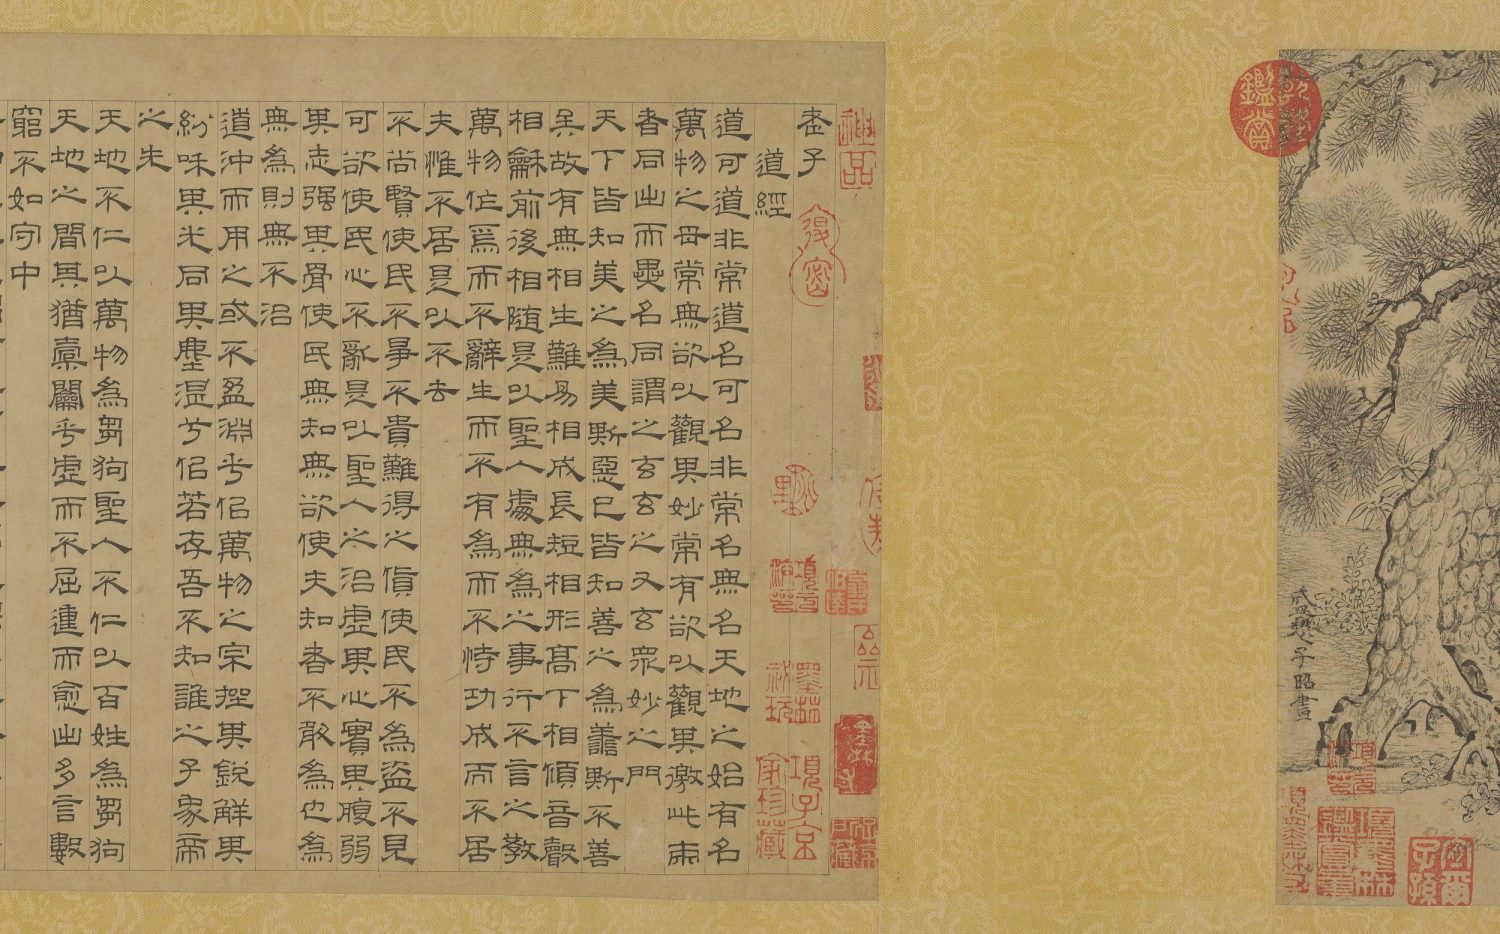 盛懋子昭畫
神品
項子京家珍藏
墨林祕玩
老子
道經
道可道非常道名可名非常名無名天地之始有名
萬物之母常無欲以觀其妙常有欲以觀其徼此兩
者同出而異名同謂之玄玄之又玄衆妙之門
天下皆知美之為美斯惡已皆知善之為善斯不善
矣故有無相生難易相成長短相形髙下相傾音聲
相龢前後相隨是以聖人處無為之事行不言之教
萬物作焉而不辭生而不有為而不恃功成而不居
夫惟不居是以不去
不尚賢使民不爭不貴難得之貨使民不為盜不見
可欲使民心不亂是以聖人之治虛其心實其腹弱
其志强其骨使民無知無欲使夫知者不敢為也為
無為則無不治
道沖而用之或不盈淵乎似萬物之宗挫其銳解其
紛和其光同其塵湛兮似若存吾不知誰之子象帝
之先
天地不仁以萬物為芻狗聖人不仁以百姓為芻狗
天地之間其猶橐籥乎虛而不屈動而愈出多言數
窮不如守中